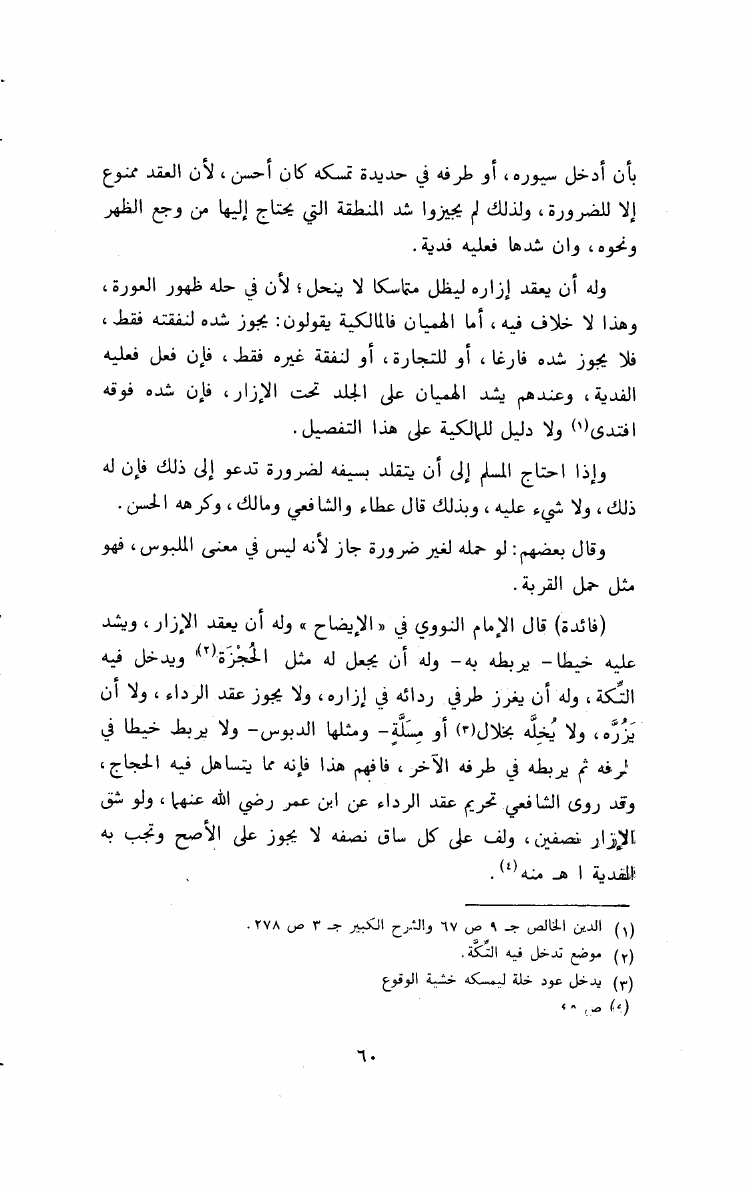 بأن أدخل سيوره، أو طرفه في حديدة تمسكه كان أحسن، لأن العقد ممنوع
إلا للضرورة، ولذلك لم يجيزوا شد المنطقة التي يحتاج إليها من وجع الظهر
ونحوه، وان شدها فعليه فدية.
وله أن يعقد إزاره ليظل متماسكا لا ينحل؛ لأن في حله ظهور العورة،
وهذا لا خلاف فيه، أما الهميان فالمالكية يقولون: يجوز شده لنفقته فقط،
فلا يجوز شده فارغا، أو للتجارة، أو لنفقة غيره فقط، فإن فعل فعليه
الفدية، وعندهم يشد الهميان على الجلد تحت الإزار، فإن شده فوقه
افتدى(١) ولا دليل للمالكية على هذا التفصيل.
وإذا احتاج المسلم إلى أن يتقلد بسيفه لضرورة تدعو إلى ذلك فإن له
ذلك، ولا شيء عليه، وبذلك قال عطاء والشافعي ومالك، وكرهه الحسن.
وقال بعضهم: لو حمله لغير ضرورة جاز لأنه ليس في معنى الملبوس، فهو
مثل حمل القربة.
(فائدة) قال الإمام النووي في «الإيضاح» وله أن يعقد الإزار، ويشد
عليه خيطا- يربطه به- وله أن يجعل له مثل الحُجْزَة(٢) ويدخل فيه
التِّكة، وله أن يغرز طرفي ردائه في إزاره، ولا يجوز عقد الرداء، ولا أن
يَزُرَّه، ولا يُخِلَّه بخلال(٣) أو مِسَلَّةٍ- ومثلها الدبوس- ولا يربط خيطا في
طرفه ثم يربطه في طرفه الآخر، فافهم هذا فإنه مما يتساهل فيه الحجاج،
وقد روى الشافعي تحريم عقد الرداء عن ابن عمر رضي الله عنهما، ولو شق
الإزار نصفين، ولف على كل ساق نصفه لا يجوز على الأصح وتجب به
الفدية ا هـ منه(٤).
(١) الدين الخالص جـ ٩ ص ٦٧ والشرح الكبير جـ ٣ ص ٢٧٨.
(٢) موضع تدخل فيه التِّكَّة.
(٣) يدخل عود خلة ليمسكه خشية الوقوع
(٤) ص
٦٠